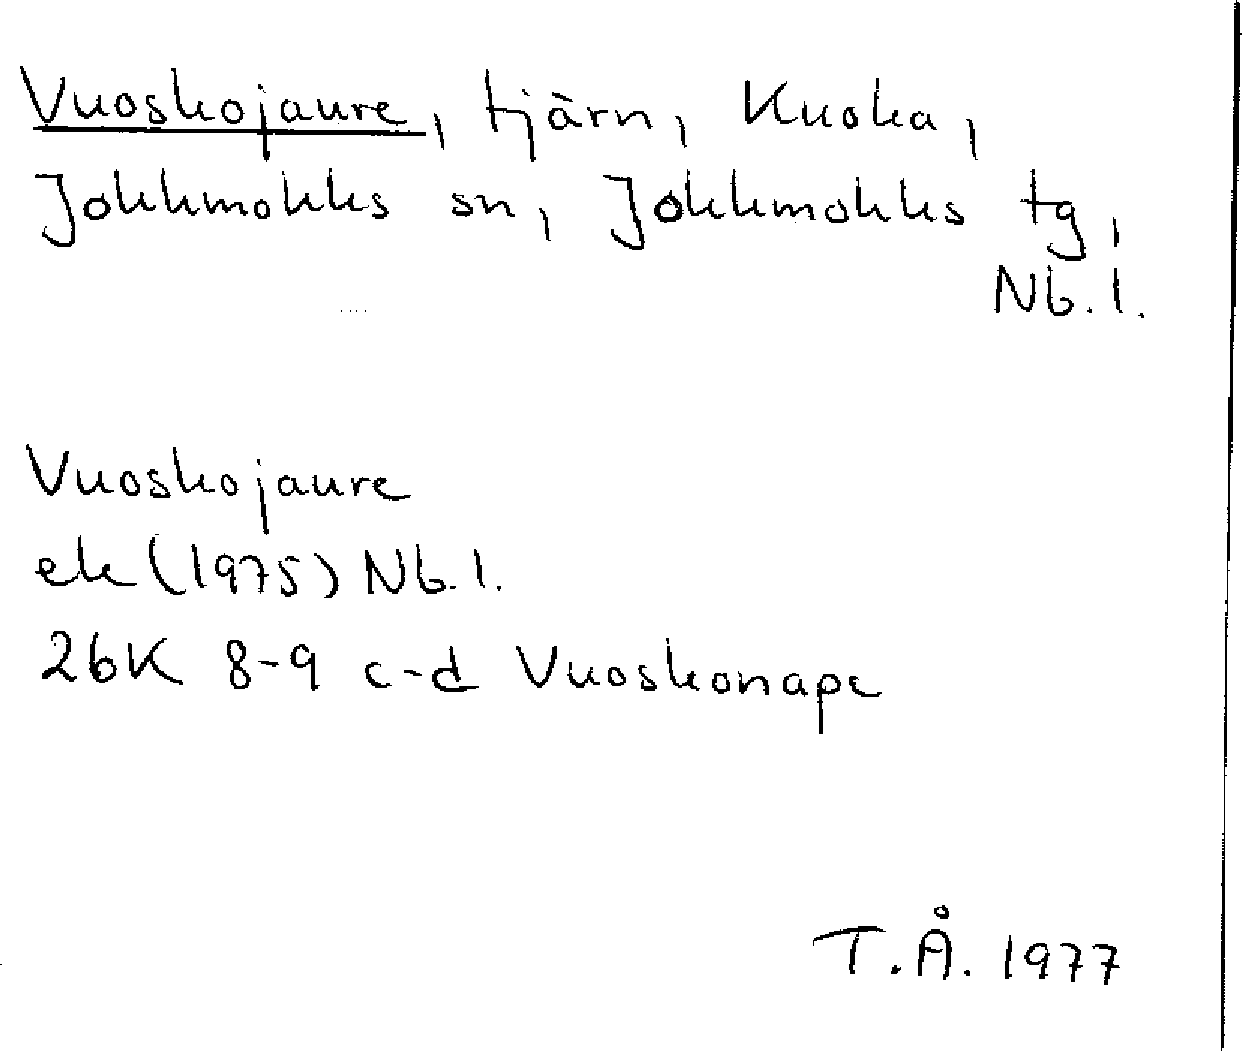 Vuoskojaure, tjärn, Kuoka,
Jokkmokks sn, Jokkmokks tg,
Nb. l.
Vuoskojaure
ek (1975) Nb. l.
26K 8-9 c-d Vuoskonape
T. Å. 1977